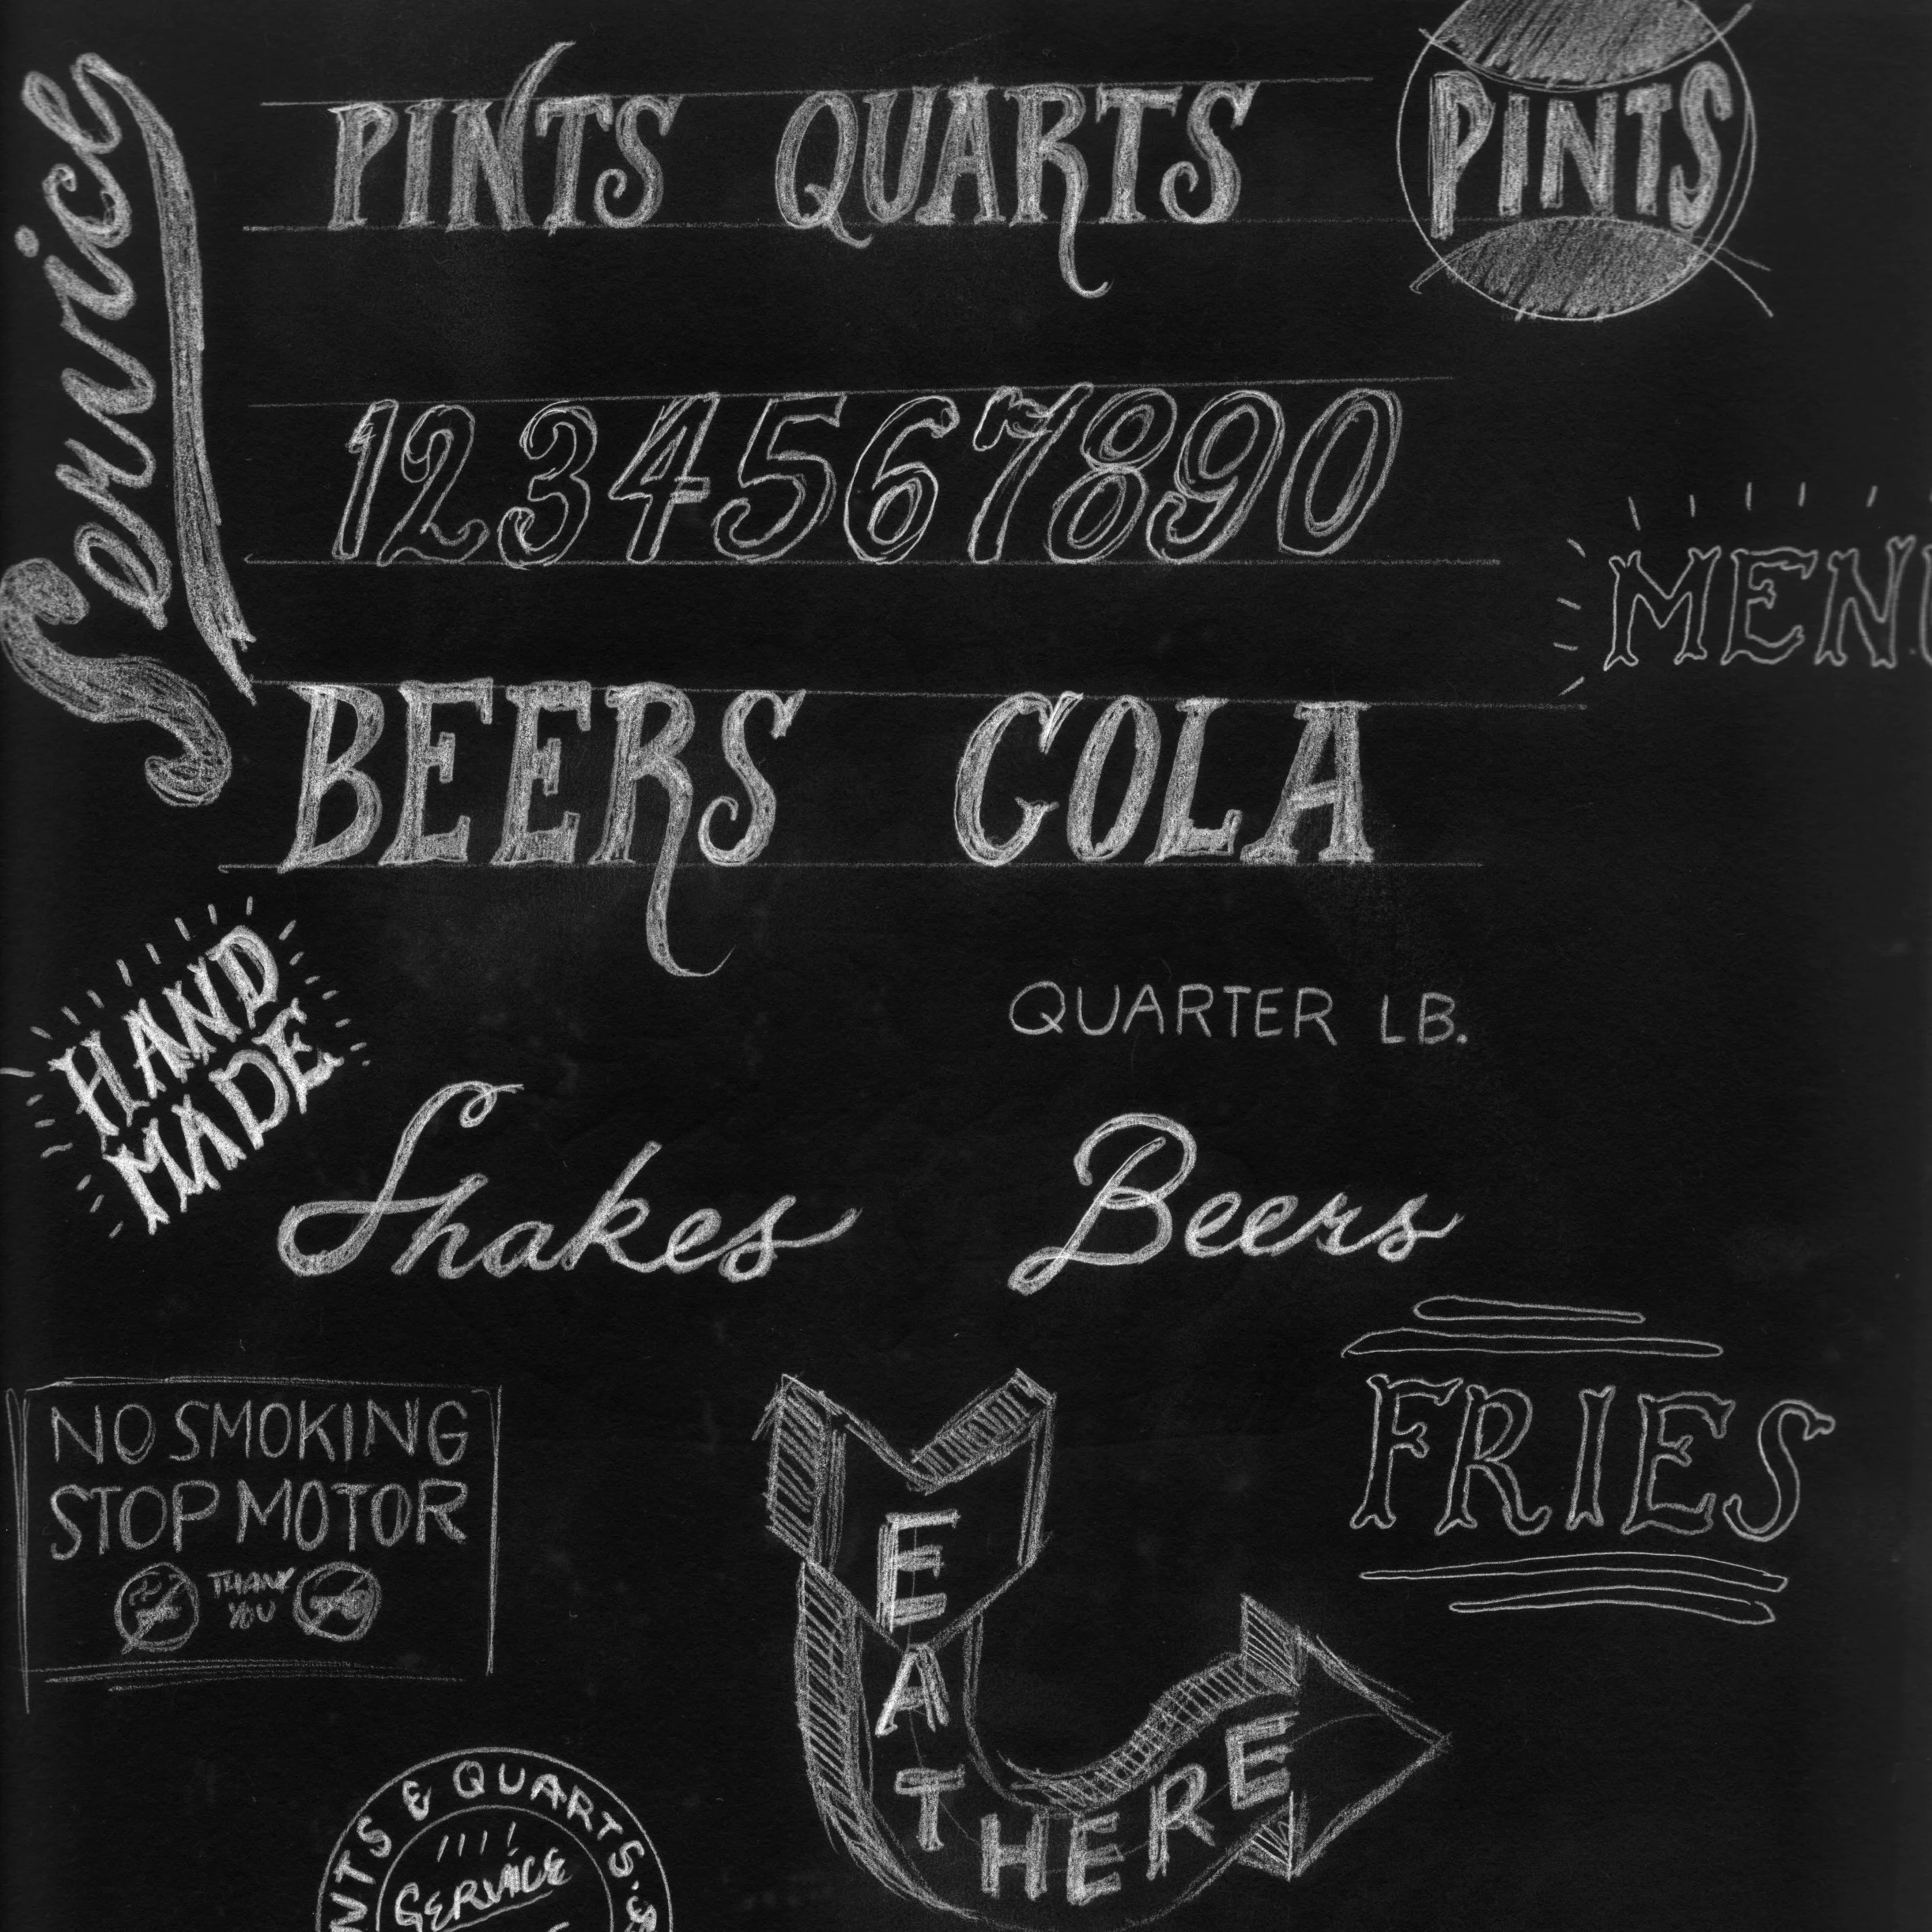 Service
PINTS QUARTS
PINTS
1234567890
MENU
BEERS COLA
HAND
MADE
QUARTER LB.
Shakes Beers
FRIES
NO SMOKING
STOP MOTOR
THANK
YOU
EAT HERE
NTS & QUARTS.
SERVICE